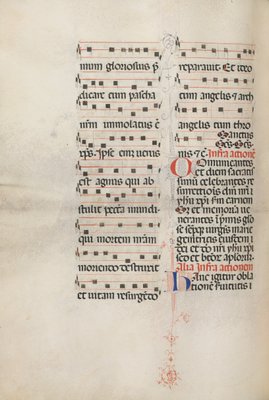 mum gloriosius p̄
dicare cum pascha
nr̄m immolatus ē
xp̄s. Ipse enim uerus
est agnus qui ab
stulit peccata mundi
qui mortem nr̄am
moriendo destruxit
et uitam resurgēdo
reparauit. Et ideo
cum angelis et arch
angelis cum thro
Sanctus
Sc̄s. Sc̄s.
nis et c̄. Infra actionē
Comunicantes
et diem sacratis
simū celebrantes re
surrectionis dn̄i nr̄i
yhu xp̄i scdm carnem
Set et memoria ue
nerantes Inprimis glo
se semper uirginis marie
genitricis eiusdem
dei et dn̄i nr̄i yhu xp̄i
set et beator̄ apl̄or̄
Alia infra actionem
Hanc igitur obla
tionem seruitutis